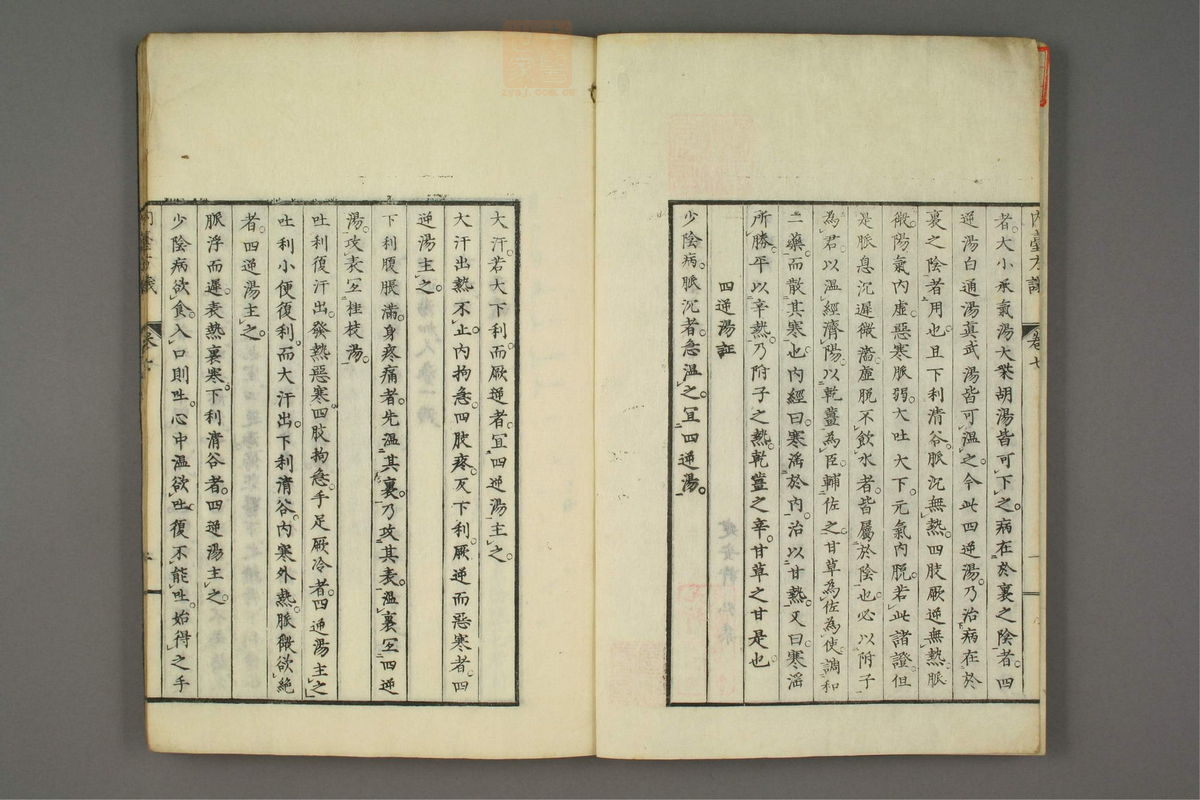 者大小承氣湯大柴胡湯皆可下之病在於裏之陰者四
逆湯白通湯真武湯皆可溫之今此四逆湯乃治病在於
裏之陰者用也且下利清谷脈沉無熱四肢厥逆無熱脈
微陽氣內虛惡寒脈弱大吐大下元氣內脫若此諸證但
是脈息沉遲微濇虛脫不飲水者皆屬於陰也必以附子
為君以溫經濟陽以乾薑為臣輔佐之甘草為佐為使調和
二藥而散其寒也內經曰寒淫於內治以甘熱又曰寒淫
所勝平以辛熱乃附子之熱乾薑之辛甘草之甘是也
四逆湯証
少陰病脈沉者急溫之宜四逆湯
大汗若大下利而厥逆者宜四逆湯主之
大汗出熱不止內拘急四肢疼又下利厥逆而惡寒者四
逆湯主之
下利腹脹滿身疼痛者先溫其裏乃攻其表溫裏宜四逆
湯攻表宜桂枝湯
吐利復汗出發熱惡寒四肢拘急手足厥冷者四逆湯主之
吐利小便復利而大汗出下利清谷內寒外熱脈微欲絕
者四逆湯主之
脈浮而遲表熱裏寒下利清谷者四逆湯主之
少陰病欲食入口則吐心中溫欲吐復不能吐始得之手